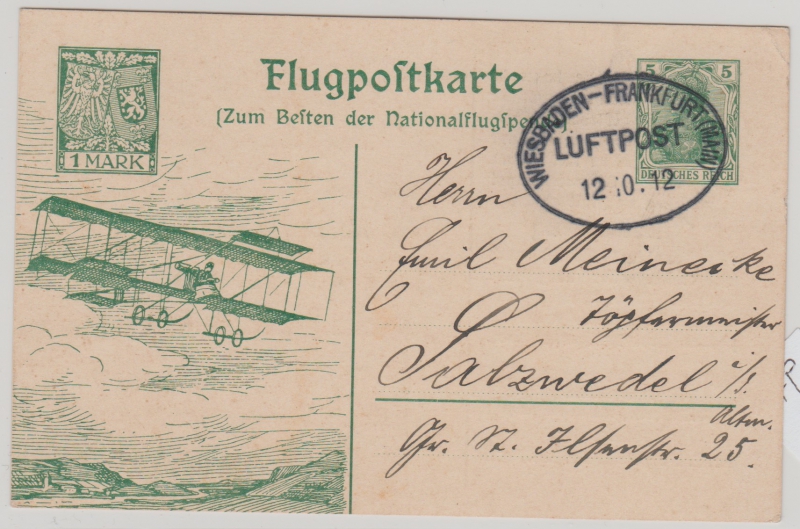 Flugpostkarte
(Zum Besten der Nationalflugspende).
1 MARK
5 5
DEUTSCHES REICH
WIESBADEN-FRANKFURT (MAIN)
LUFTPOST
12 10. 12
Herrn
Emil Meinecke
Töpfermeister
Salzwedel i/
Altm.
Gr. St. Ilsenstr. 25.